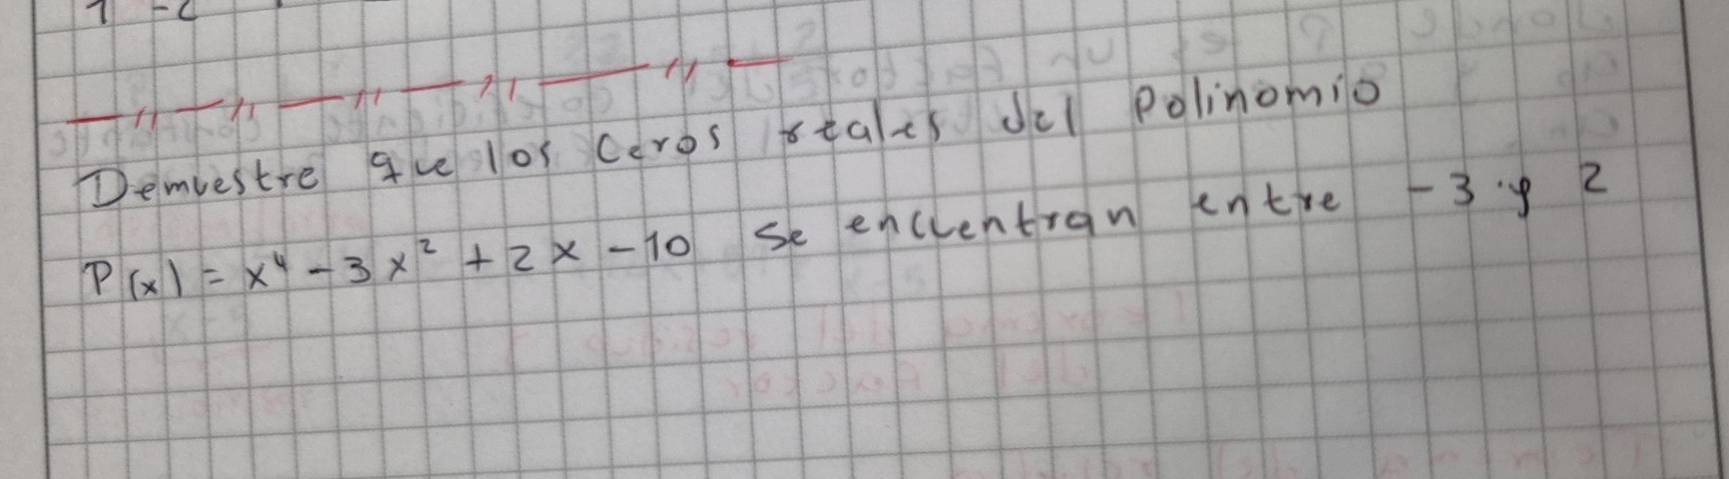 Demuestre que los ceros reales del Polinomio
P(x) = x⁴ - 3x² + 2x - 10 Se encuentran entre -3 y 2